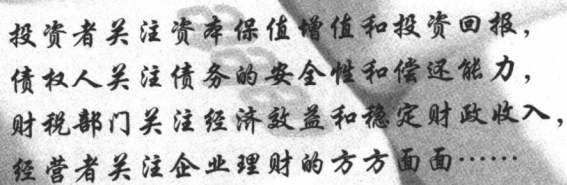 投资者关注资本保值增值和投资回报，
债权人关注债务的安全性和偿还能力，
财税部门关注经济效益和稳定财政收入，
经营者关注企业理财的方方面面……